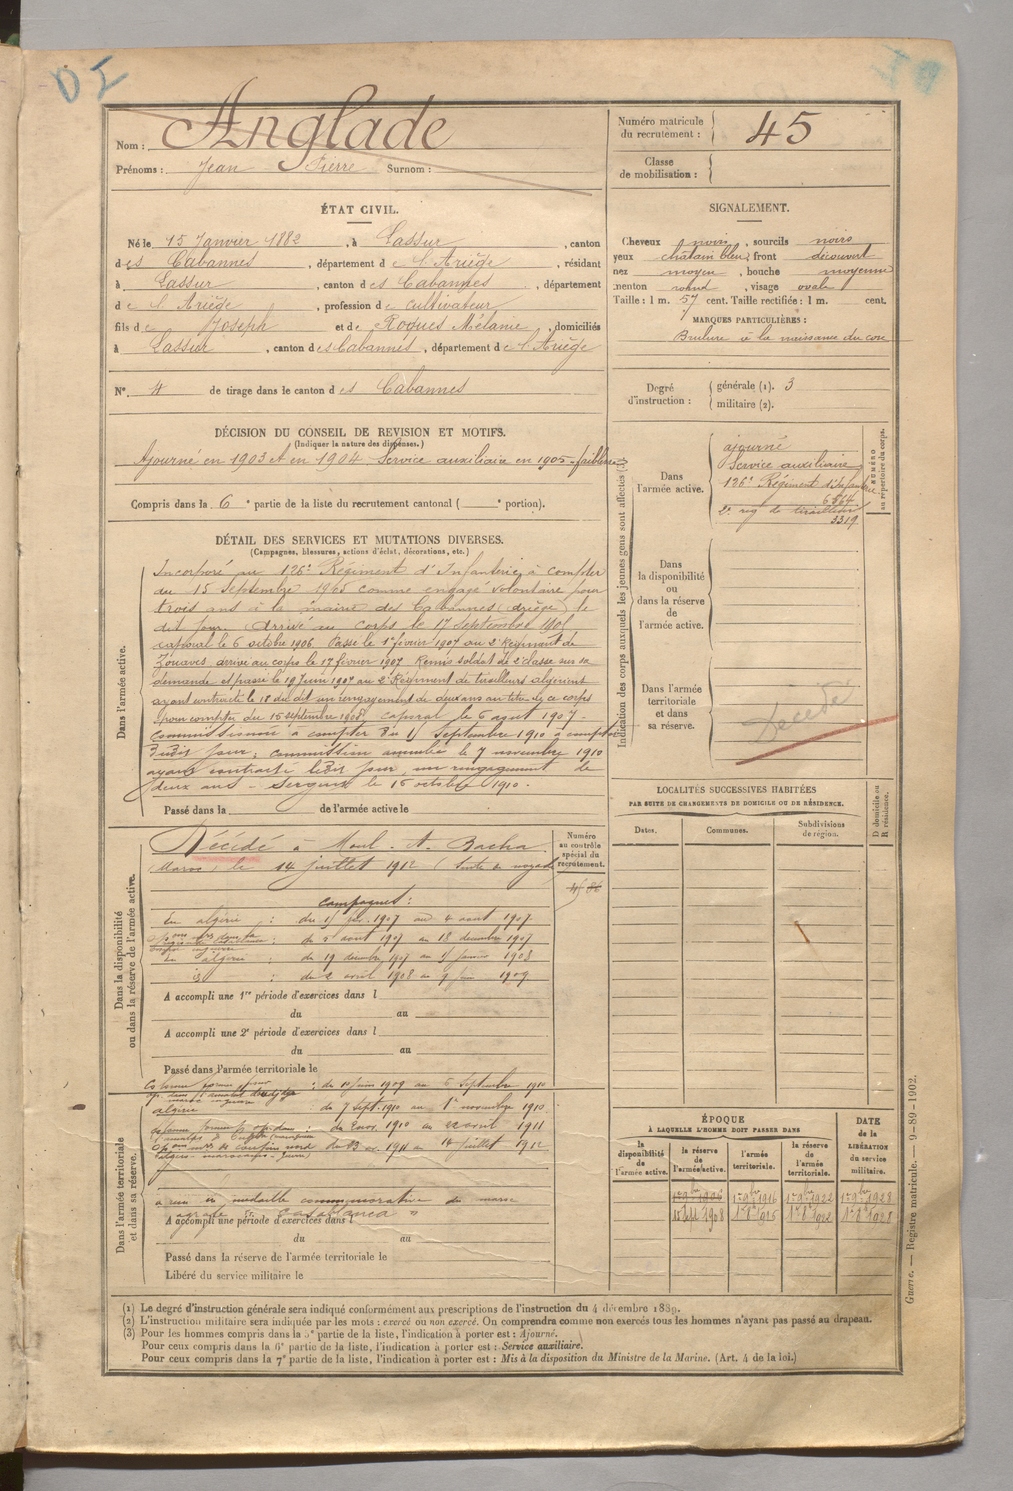 DI
Nom : Anglade
Prénoms : Jean Pierre Surnom :
Numéro matricule
du recrutement : 45
Classe
de mobilisation :
ÉTAT CIVIL.
Né le 15 Janvier 1882, à Lassur, canton
des Cabannes, département de l'Ariège, résidant
à Lassur, canton des Cabannes, département
de l'Ariège, profession de cultivateur
fils de Joseph et de Roques Mélanie, domiciliés
à Lassur, canton des Cabannes, département de l'Ariège
N° 4 de tirage dans le canton des Cabannes
SIGNALEMENT.
Cheveux noirs, sourcils noirs
yeux châtain bleu, front découvert
nez moyen, bouche moyenne
menton rond, visage ovale
Taille : 1 m. 57 cent. Taille rectifiée : 1 m. cent.
MARQUES PARTICULIÈRES :
Brulure à la naissance du cou
Degré
d'instruction :
générale (1). 3
militaire (2).
DÉCISION DU CONSEIL DE REVISION ET MOTIFS.
(Indiquer la nature des dispenses.)
Ajourné en 1903 et en 1904 Service auxiliaire en 1905 faiblesse
Compris dans la 6e partie de la liste du recrutement cantonal ( e portion).
DÉTAIL DES SERVICES ET MUTATIONS DIVERSES.
(Campagnes, blessures, actions d'éclat, décorations, etc.)
Dans l'armée active.
Incorporé au 126e Régiment d'Infanterie à compter
du 15 Septembre 1905 comme engagé volontaire pour
trois ans à la mairie des Cabannes (Ariège) le
dit jour. Arrivé au corps le 17 Septembre 1905
caporal le 6 octobre 1906 Passé le 1er février 1907 au 2e Régiment de
Zouaves arrivé au corps le 17 février 1907 Remis soldat de 2e classe sur sa
demande et passé le 19 Juin 1907 au 2e Régiment de tirailleurs algériens
ayant contracté le 18 du dit un rengagement de deux ans au titre de ce corps
pour compter du 15 septembre 1908, caporal le 6 août 1907 -
Commissionné à compter du 15 Septembre 1910 à compter
dudit jour ; commission annulée le 7 novembre 1910
ayant contracté ledit jour un rengagement de
deux ans - Sergent le 16 octobre 1910 -
Passé dans la de l'armée active le
Indication des corps auxquels les jeunes gens sont affectés (3).
NUMÉRO
au répertoire du corps.
Dans
l'armée active.
ajourné
Service auxiliaire
126e Régiment d'Infanterie
6564
2e rég de tirailleurs
3319
Dans
la disponibilité
ou
dans la réserve
de
l'armée active.
Dans l'armée
territoriale
et dans
sa réserve.
Décédé
Dans la disponibilité
ou dans la réserve de l'armée active.
Décédé à Moul. A. Bacha
(Maroc) le 14 juillet 1912 (Suite de noyade
Numéro
au contrôle
spécial du
recrutement.
Campagnes :
En algérie : du 15 fév. 1907 au 4 août 1907
: du 5 août 1907 au 18 décembre 1907
En algérie : du 19 décembre 1907 au 5 Janvier 1908
id : du 2 avril 1908 au 9 Juin 1909
A accompli une 1re période d'exercices dans l
du au
A accompli une 2e période d'exercices dans l
du au
Passé dans l'armée territoriale le
: du 10 Juin 1909 au 6 Septembre 1910
algérie : du 7 Sept. 1910 au 1er novembre 1910
: du 2 nov. 1910 au 22 avril 1911
du 23 av. 1911 au 14 juillet 1912
Dans l'armée territoriale
et dans sa réserve.
a eu la médaille commémorative du maroc
agrafe de "Casablanca"
A accompli une période d'exercices dans l
du au
Passé dans la réserve de l'armée territoriale le
Libéré du service militaire le
LOCALITÉS SUCCESSIVES HABITÉES
PAR SUITE DE CHANGEMENTS DE DOMICILE OU DE RÉSIDENCE.
Dates. Communes. Subdivisions
de région.
D domicile ou
R résidence.
ÉPOQUE
À LAQUELLE L'HOMME DOIT PASSER DANS
DATE
de la
LIBÉRATION
du service
militaire.
la
disponibilité
de
l'armée active.
la réserve
de
l'armée active.
l'armée
territoriale.
la réserve
de
l'armée
territoriale.
1er 9bre 1906 1er 9bre 1916 1er 9bre 1922 1er 9bre 1928
15 Sept 1908
Guerre. — Registre matricule. — 9-89-1902.
(1) Le degré d'instruction générale sera indiqué conformément aux prescriptions de l'instruction du 4 décembre 1889.
(2) L'instruction militaire sera indiquée par les mots : exercé ou non exercé. On comprendra comme non exercés tous les hommes n'ayant pas passé au drapeau.
(3) Pour les hommes compris dans la 5e partie de la liste, l'indication à porter est : Ajourné.
Pour ceux compris dans la 6e partie de la liste, l'indication à porter est : Service auxiliaire.
Pour ceux compris dans la 7e partie de la liste, l'indication à porter est : Mis à la disposition du Ministre de la Marine. (Art. 4 de la loi.)